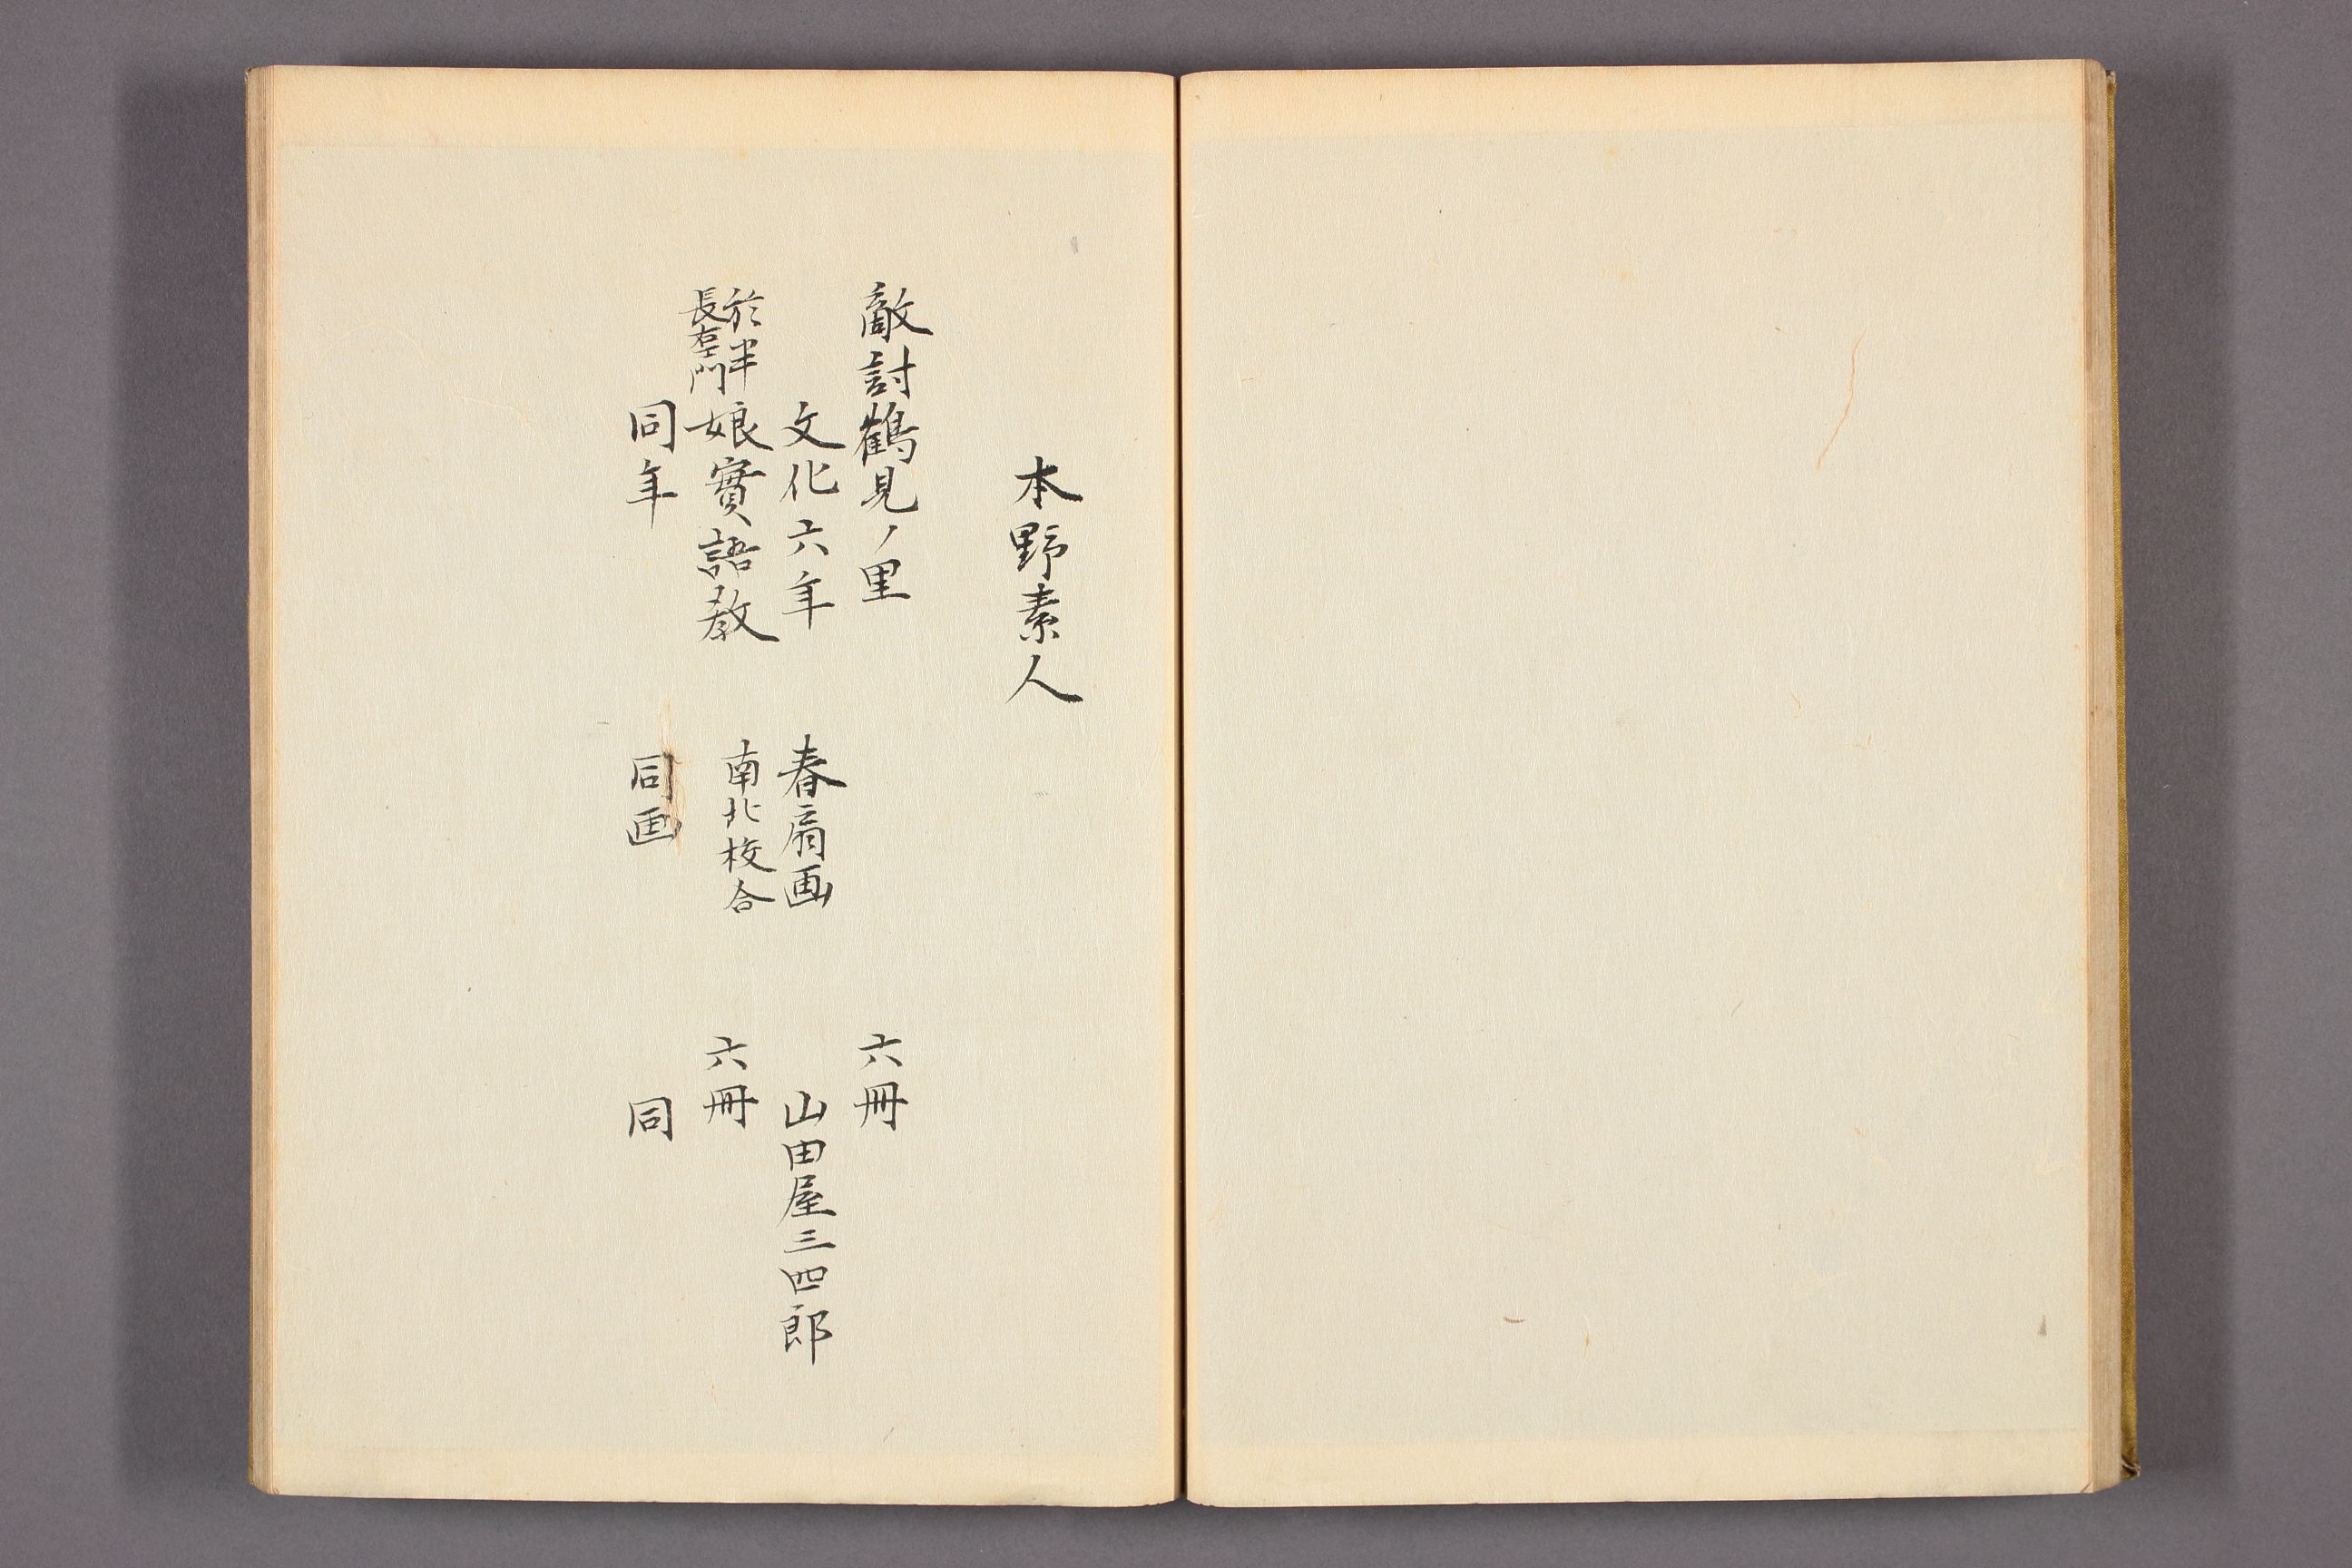 本野素人
敵討鶴見ノ里 六冊
文化六年 春扇画 山田屋三四郎
於半
長右エ門
娘實語教 南北校合 六冊
同年 同画 同